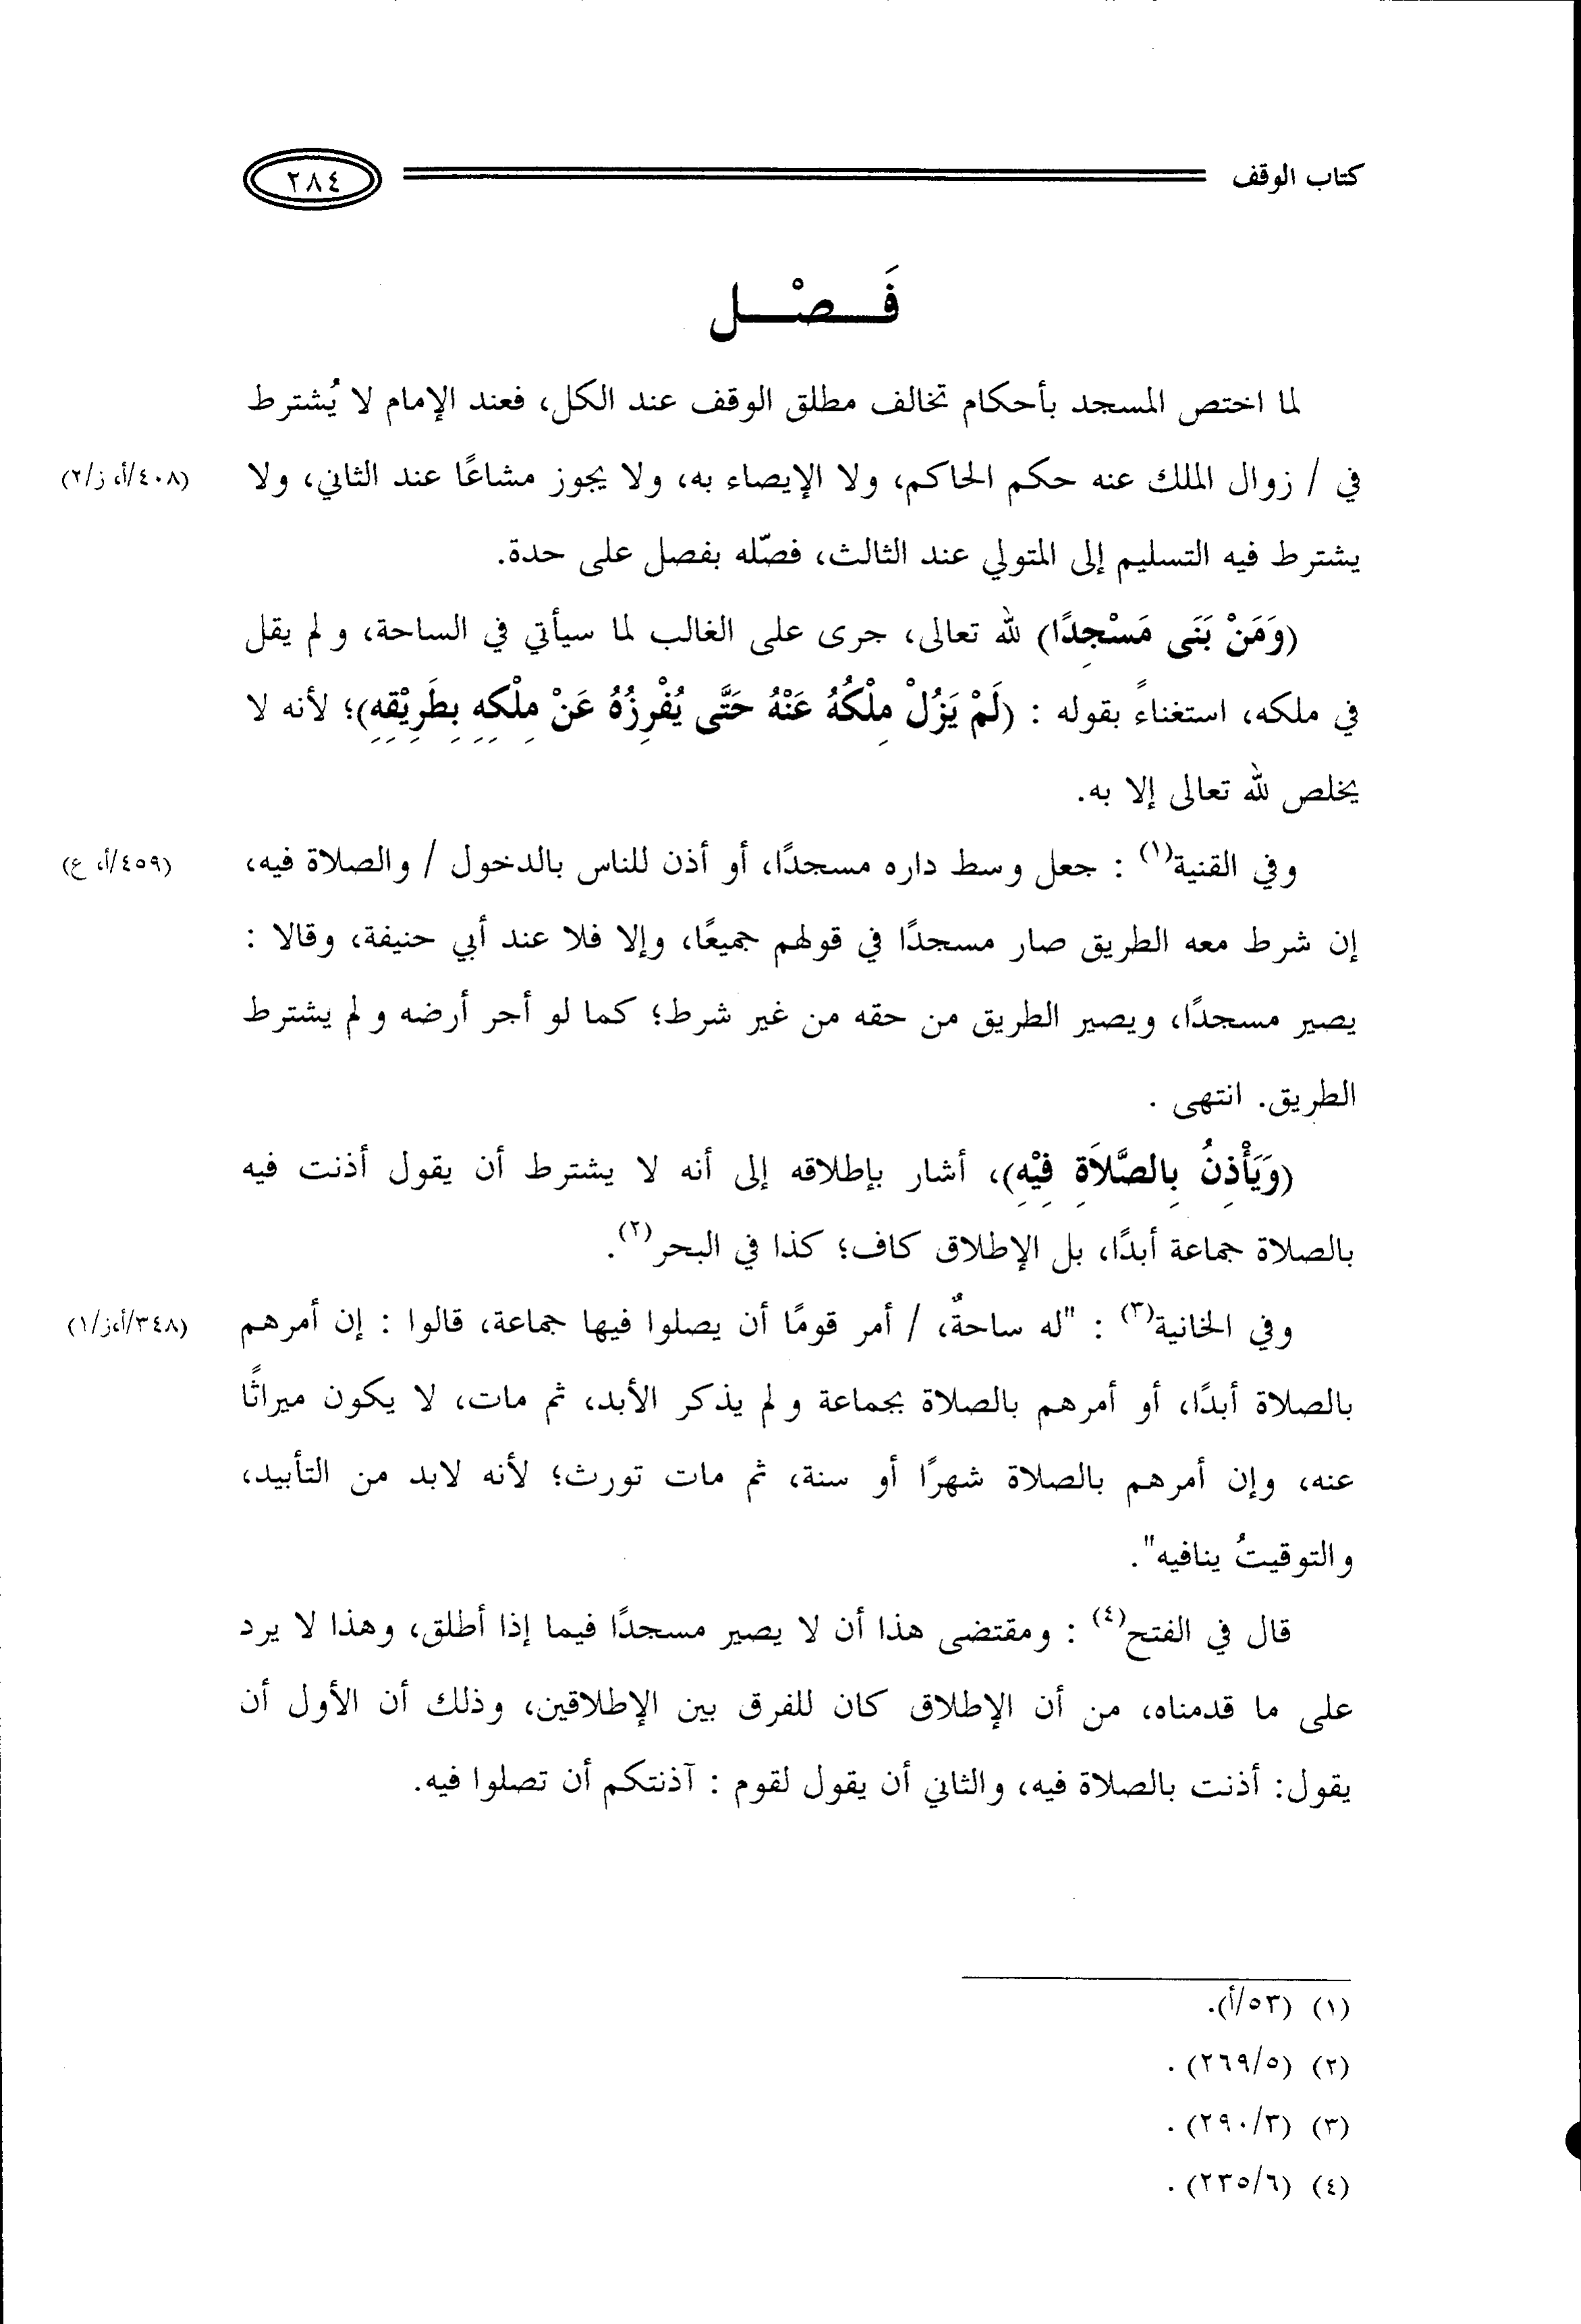 كتاب الوقف
٢٨٤
فَـــصْـــل
لما اختص المسجد بأحكام تخالف مطلق الوقف عند الكل، فعند الإمام لا يُشترط
في / زوال الملك عنه حكم الحاكم، ولا الإيصاء به، ولا يجوز مشاعًا عند الثاني، ولا
(٤٠٨/أ، ز/٢)
يشترط فيه التسليم إلى المتولي عند الثالث، فصّله بفصل على حدة.
(وَمَنْ بَنَى مَسْجِدًا) لله تعالى، جرى على الغالب لما سيأتي في الساحة، ولم يقل
في ملكه، استغناءً بقوله : (لَمْ يَزُلْ مِلْكُهُ عَنْهُ حَتَّى يُفْرِزُهُ عَنْ مِلْكِهِ بِطَرِيْقِهِ)؛ لأنه لا
يخلص لله تعالى إلا به.
وفي القنية(١) : جعل وسط داره مسجدًا، أو أذن للناس بالدخول / والصلاة فيه،
(٤٥٩/أ، ع)
إن شرط معه الطريق صار مسجدًا في قولهم جميعًا، وإلا فلا عند أبي حنيفة، وقالا :
يصير مسجدًا، ويصير الطريق من حقه من غير شرط؛ كما لو أجر أرضه ولم يشترط
الطريق. انتهى .
(وَيَأْذِنُ بِالصَّلاَةِ فِيْهِ)، أشار بإطلاقه إلى أنه لا يشترط أن يقول أذنت فيه
بالصلاة جماعة أبدًا، بل الإطلاق كاف؛ كذا في البحر(٢).
وفي الخانية(٣) : "له ساحةٌ، / أمر قومًا أن يصلوا فيها جماعة، قالوا : إن أمرهم
(٣٤٨/أ،ز/١)
بالصلاة أبدًا، أو أمرهم بالصلاة بجماعة ولم يذكر الأبد، ثم مات، لا يكون ميراثًا
عنه، وإن أمرهم بالصلاة شهرًا أو سنة، ثم مات تورث؛ لأنه لابد من التأبيد،
والتوقيتُ ينافيه".
قال في الفتح(٤) : ومقتضى هذا أن لا يصير مسجدًا فيما إذا أطلق، وهذا لا يرد
على ما قدمناه، من أن الإطلاق كان للفرق بين الإطلاقين، وذلك أن الأول أن
يقول: أذنت بالصلاة فيه، والثاني أن يقول لقوم : آذنتكم أن تصلوا فيه.
(١) (٥٣/أ).
(٢) (٢٦٩/٥) .
(٣) (٢٩٠/٣) .
(٤) (٢٣٥/٦) .